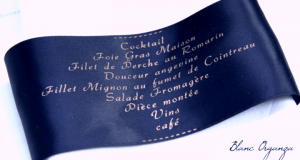 Cocktail
Foie Gras Maison
Filet de Perche au Romarin
Douceur angevine
Fillet Mignon au fumet de Cointreau
Salade Fromagère
Pièce montée
Vins
café
Blanc Organza